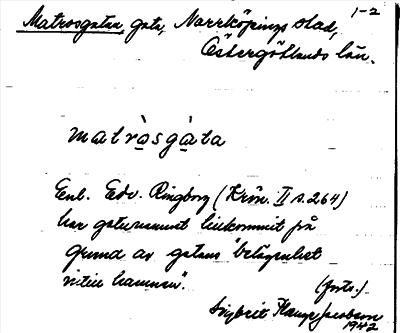 1-2
Matrosgatan, gata, Norrköpings stad,
Östergötlands län.
matròsgàta
Enl. Edv. Ringborg (Krön. II s. 264)
har gatunamnet tillkommit på
grund av gatans "belägenhet
intill hamnen".
(forts.)
Sigbrit Plange Jacobson
1942